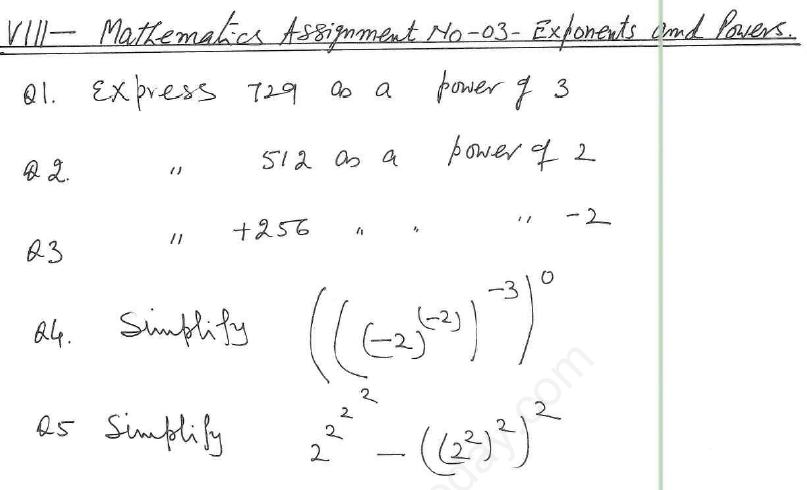 VIII - Mathematics Assignment No-03- Exponents and Powers.
Q1. Express 729 as a power of 3
Q2. " 512 as a power of 2
Q3 " +256 " " " -2
Q4. Simplify (((-2)^(-2))^-3)^0
Q5 Simplify 2^2^2^2 - ((2^2)^2)^2